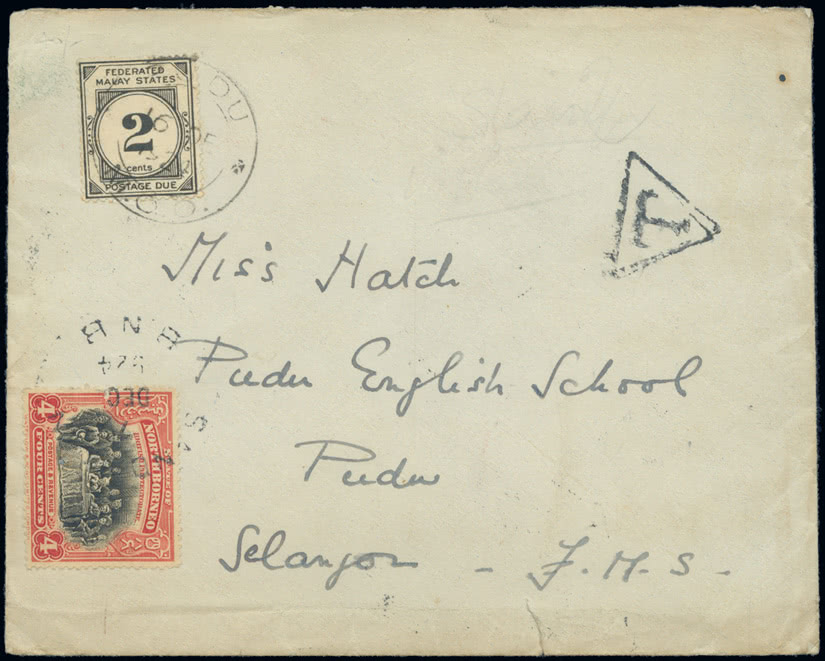 FEDERATED
MALAY STATES
2
cents
POSTAGE DUE
16 DE
T
Miss Hatch
Pudu English School
Pudu
Selangor - F.M.S.
B N B
DEC
STATE OF
NORTH BORNEO
4
POSTAGE & REVENUE
FOUR CENTS
4